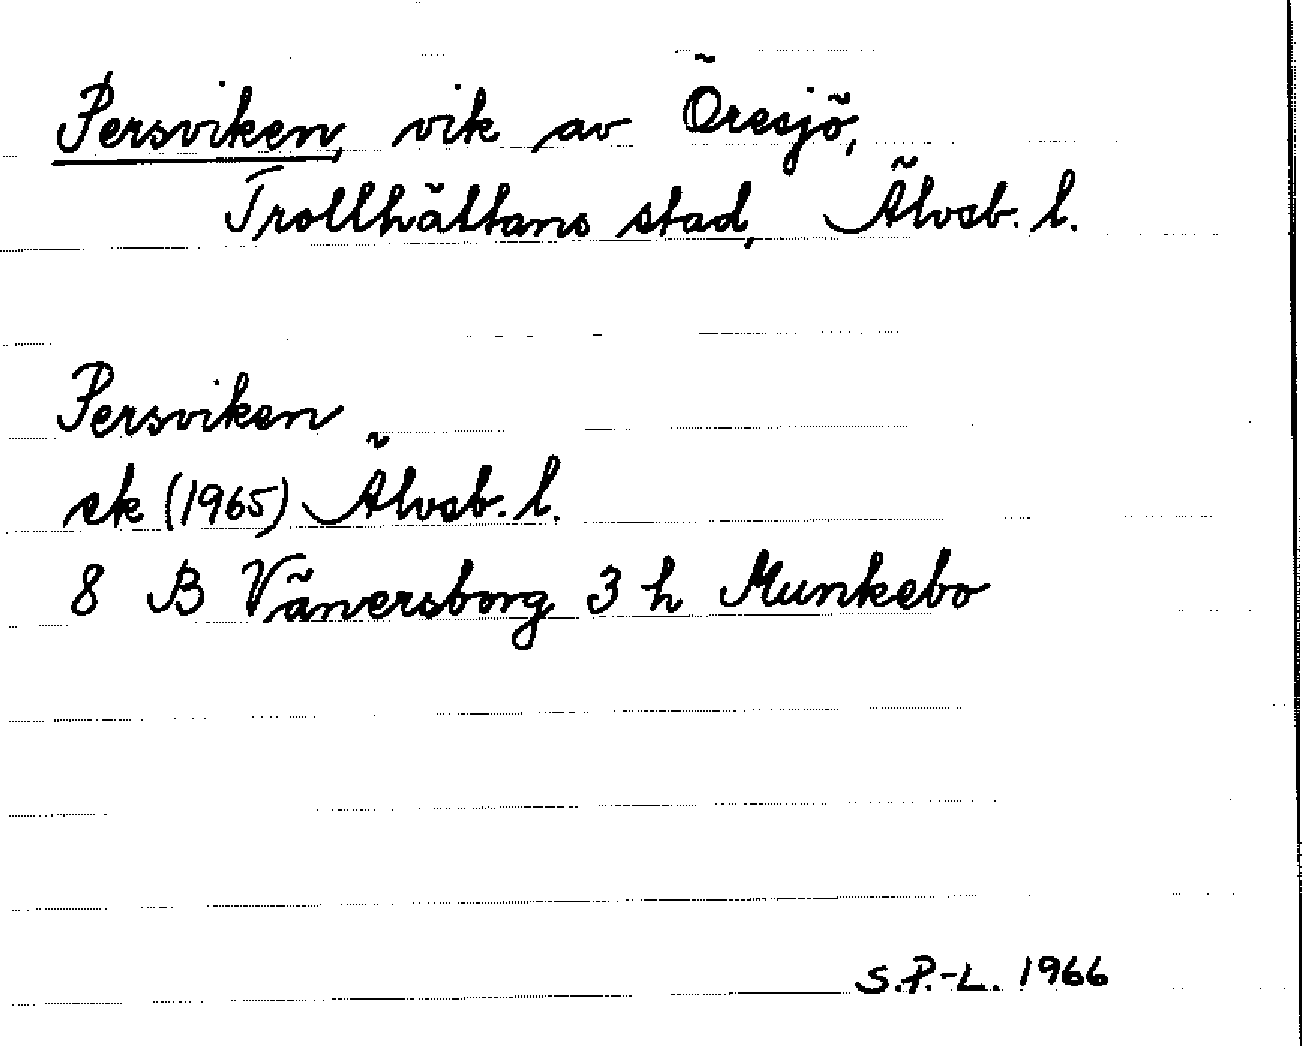 Persviken, vik av Öresjö,
Trollhättans stad, Älvsb. l.
Persviken
ek (1965) Älvsb. l.
8 B Vänersborg 3 h Munkebo
S.P.-L. 1966